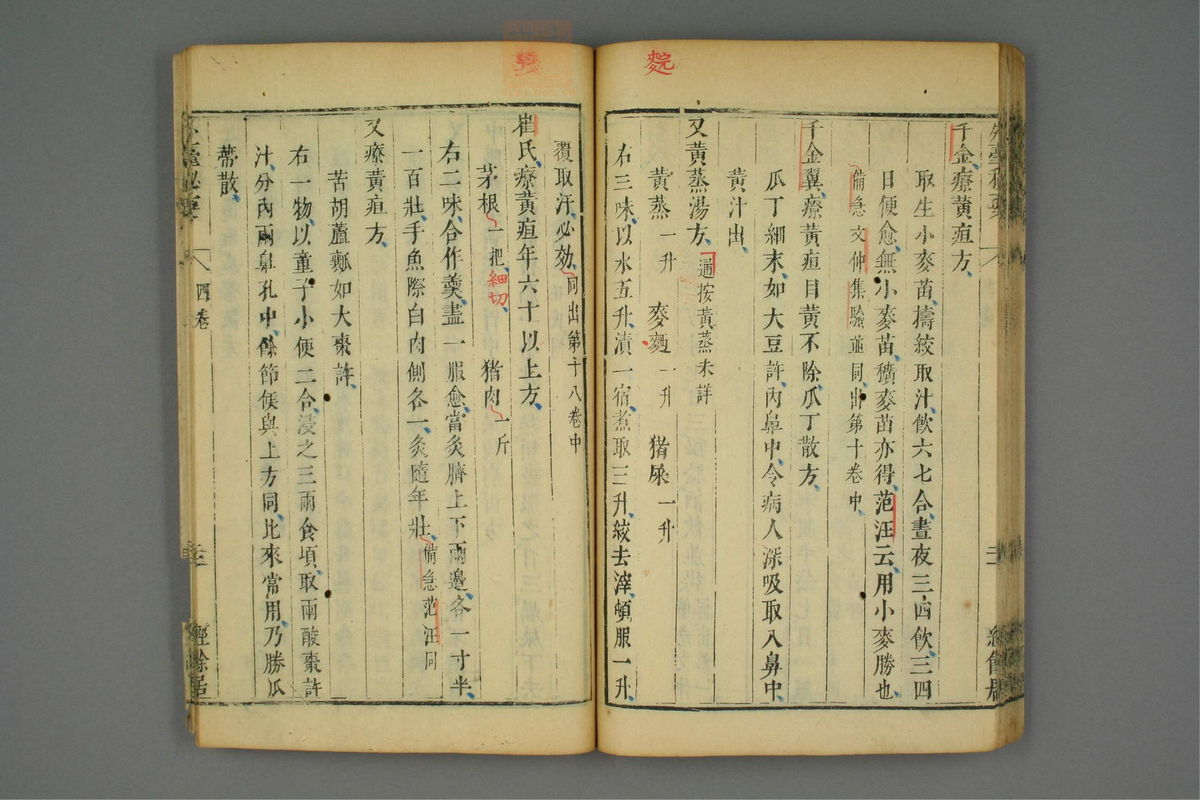 千金療黃疸方
取生小麥苗擣絞取汁飲六七合晝夜三四飲三四
日便愈無小麥苗穬麥苗亦得范汪云用小麥勝也
備急文仲集驗並同出第十卷中
千金翼療黃疸目黃不除瓜丁散方
瓜丁細末如大豆許內鼻中令病人深吸取入鼻中
黃汁出
又黃蒸湯方 通按黃蒸未詳
黃蒸一升 麥麪一升 猪屎一升
右三味以水五升漬一宿煮取三升絞去滓頓服一升
覆取汗必効同出第十八卷中
崔氏療黃疸年六十以上方
茅根一把細切 猪肉一斤
右二味合作羹盡一服愈當灸臍上下兩邊各一寸半
一百壯手魚際白肉側各一灸隨年壯備急范汪同
又療黃疸方
苦胡蘆瓤如大棗許
右一物以童子小便二合浸之三兩食頃取兩酸棗許
汁分內兩鼻孔中餘節候與上方同比來常用乃勝瓜
蒂散
外臺秘要 四卷 經餘居